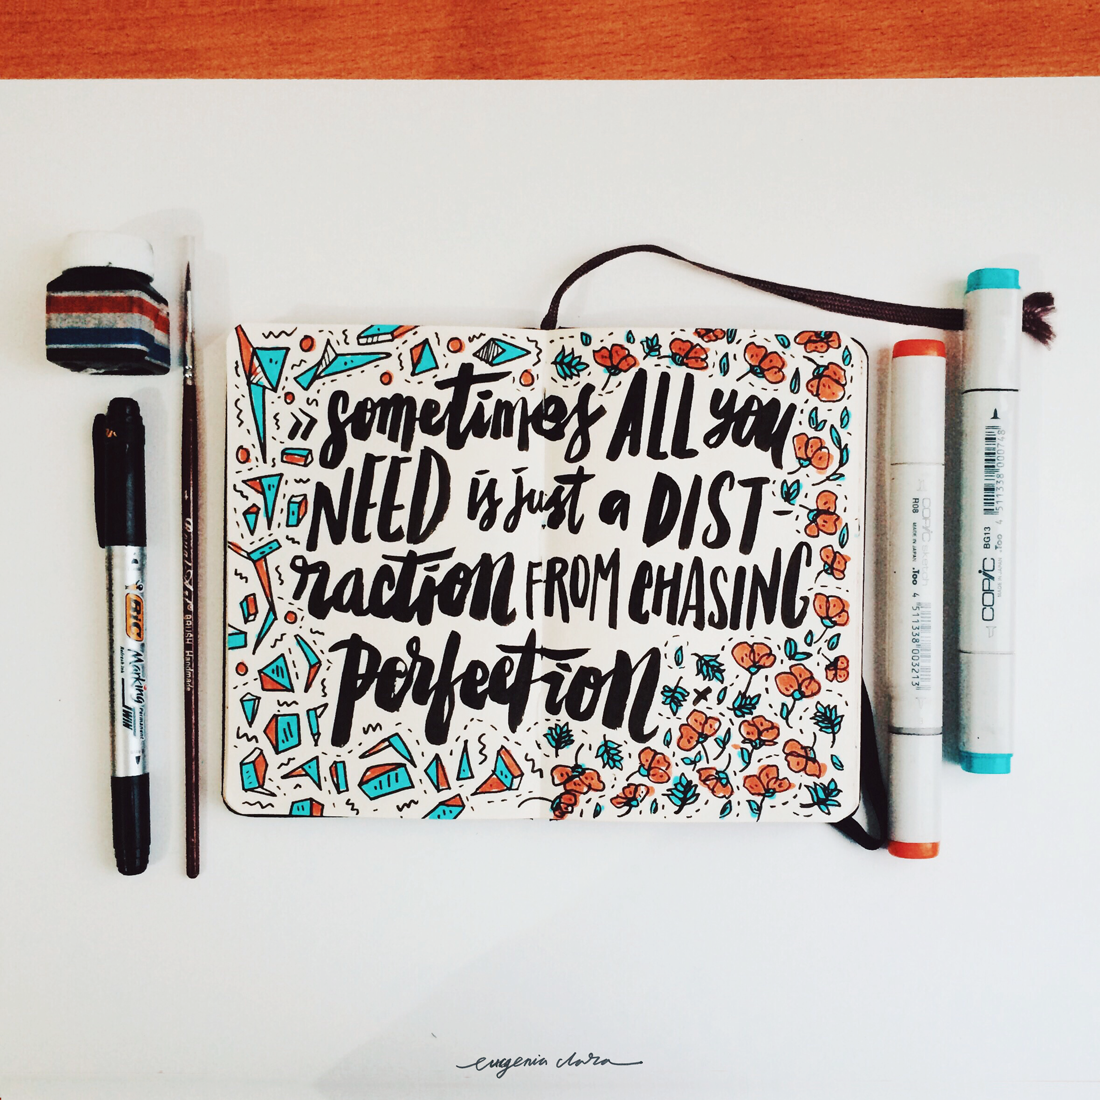 » sometimes ALL you
NEED is just a DIST-
raction FROM CHASING
perfection
BIC Marking
permanent
TWIN
BRUSH Handmade
R08 MADE IN JAPAN .Too 4 511338 003213
COPIC BG13 MADE IN JAPAN .Too 4 511338 000748
eugenia clara